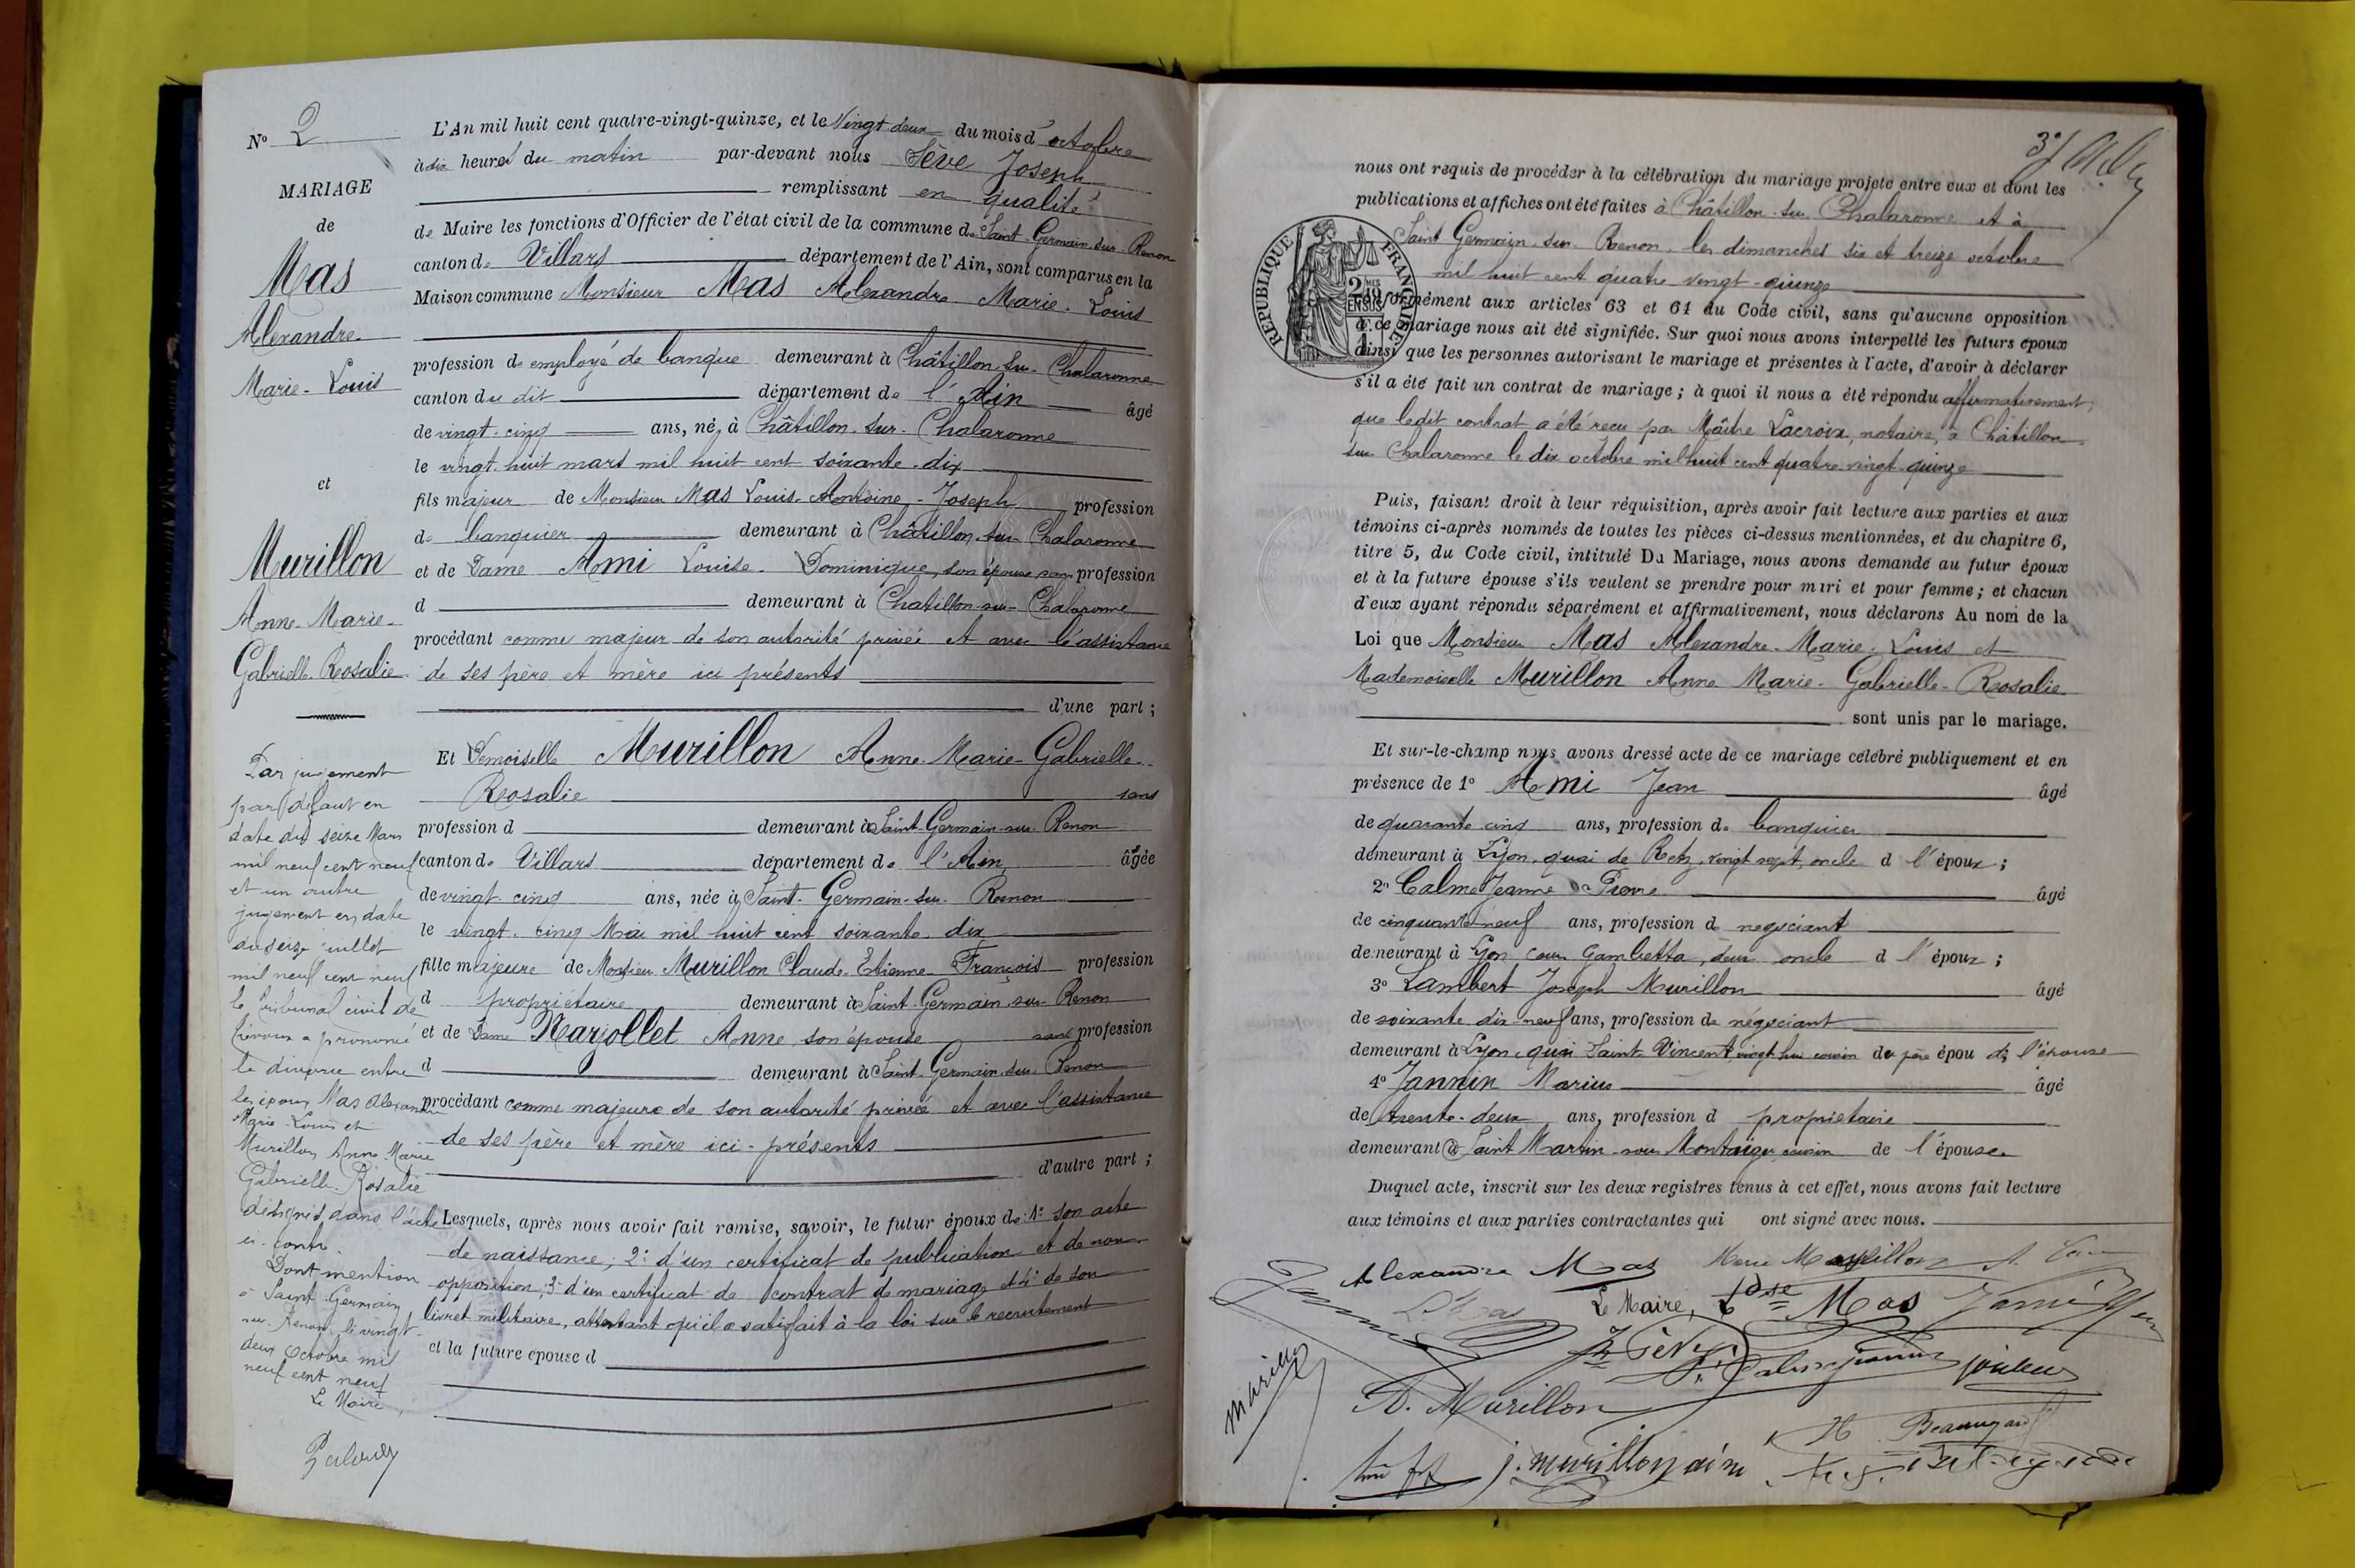 N° 2
MARIAGE
de
Mas
Alexandre
Marie-Louis
et
Murillon
Anne-Marie-
Gabrielle-Rosalie
Par jugement
par défaut en
date du seize Mars
mil neuf cent neuf
et un autre
jugement en date
du seize juillet
mil neuf cent neuf
le Tribunal civil de
Trévoux a prononcé
le divorce entre
les époux Mas Alexandre
Marie-Louis et
Murillon Anne-Marie
Gabrielle-Rosalie
désignés dans l'acte
ci-contre.
Dont mention
à Saint-Germain
sur-Renon, le vingt-
deux Octobre mil
neuf cent neuf
Le Maire,
L'An mil huit cent quatre-vingt-quinze, et le Vingt deux du mois d'octobre
à dix heures du matin par-devant nous Sève Joseph
remplissant en qualité
de Maire les fonctions d'Officier de l'état civil de la commune de Saint Germain-sur-Renon
canton de Villars département de l'Ain, sont comparus en la
Maison commune Monsieur Mas Alexandre-Marie-Louis
profession de employé de banque demeurant à Châtillon-sur-Chalaronne
canton du dit département de l'Ain âgé
de vingt-cinq ans, né à Châtillon-sur-Chalaronne
le vingt-huit mars mil huit cent soixante-dix
fils majeur de Monsieur Mas Louis-Antoine-Joseph profession
de banquier demeurant à Châtillon-sur-Chalaronne
et de Dame Ami Louise-Dominique, son épouse sans profession
d demeurant à Chatillon-sur-Chalaronne
procédant comme majeur de son autorité privée et avec l'assistance
de ses père et mère ici présents
d'une part ;
Et Demoiselle Murillon Anne-Marie-Gabrielle-
Rosalie sans
profession d demeurant à Saint-Germain-sur-Renon
canton de Villars département de l'Ain âgée
de vingt-cinq ans, née à Saint-Germain-sur-Renon
le vingt-cinq Mai mil huit cent soixante-dix
fille majeure de Monsieur Murillon Claude-Etienne-François profession
d propriétaire demeurant à Saint-Germain-sur-Renon
et de Dame Marjollet Anne, son épouse sans profession
d demeurant à Saint-Germain-sur-Renon
procédant comme majeure de son autorité privée et avec l'assistance
de ses père et mère ici-présents
d'autre part ;
Lesquels, après nous avoir fait remise, savoir, le futur époux de 1° son acte
de naissance; 2° d'un certificat de publication et de non-
opposition; 3° d'un certificat de contrat de mariage et 4° de son
livret militaire, attestant qu'il a satisfait à la loi sur le recrutement
et la future épouse d
3e
nous ont requis de procéder à la célébration du mariage projeté entre eux et dont les
publications et affiches ont été faites à Châtillon-sur-Chalaronne et à
Saint Germain-sur-Renon, les dimanches six et treize octobre
mil huit cent quatre-vingt-quinze
RÉPUBLIQUE FRANÇAISE
conformément aux articles 63 et 64 du Code civil, sans qu'aucune opposition
à ce mariage nous ait été signifiée. Sur quoi nous avons interpellé les futurs époux
ainsi que les personnes autorisant le mariage et présentes à l'acte, d'avoir à déclarer
s'il a été fait un contrat de mariage ; à quoi il nous a été répondu affirmativement,
que ledit contrat a été reçu par Maître Lacroix, notaire, à Châtillon-
sur Chalaronne le dix octobre mil huit cent quatre-vingt-quinze
Puis, faisant droit à leur réquisition, après avoir fait lecture aux parties et aux
témoins ci-après nommés de toutes les pièces ci-dessus mentionnées, et du chapitre 6,
titre 5, du Code civil, intitulé Du Mariage, nous avons demandé au futur époux
et à la future épouse s'ils veulent se prendre pour mari et pour femme ; et chacun
d'eux ayant répondu séparément et affirmativement, nous déclarons Au nom de la
Loi que Monsieur Mas Alexandre-Marie-Louis et
Mademoiselle Murillon Anne-Marie-Gabrielle-Rosalie
sont unis par le mariage.
Et sur-le-champ nous avons dressé acte de ce mariage célébré publiquement et en
présence de 1° Ami Jean âgé
de quarante-cinq ans, profession de banquier
demeurant à Lyon, quai de Retz, vingt-sept, oncle d l'époux ;
2° Calme Jeanne Pierre âgé
de cinquante-neuf ans, profession d negociant
demeurant à Lyon cours Gambetta, deux oncle d l'époux ;
3° Lambert Joseph Murillon âgé
de soixante dix-neuf ans, profession de négociant
demeurant à Lyon, quai Saint-Vincent cousin du père épou de l'épouse
4° Jannin Marius âgé
de trente-deux ans, profession d propriétaire
demeurant à Saint Martin-sous-Montaigu cousin de l'épouse
Duquel acte, inscrit sur les deux registres tenus à cet effet, nous avons fait lecture
aux témoins et aux parties contractantes qui ont signé avec nous.
Alexandre Mas Marie Murillon
L. Mas Le Maire, Mas
Sève
Murillon
J. Murillon ainé